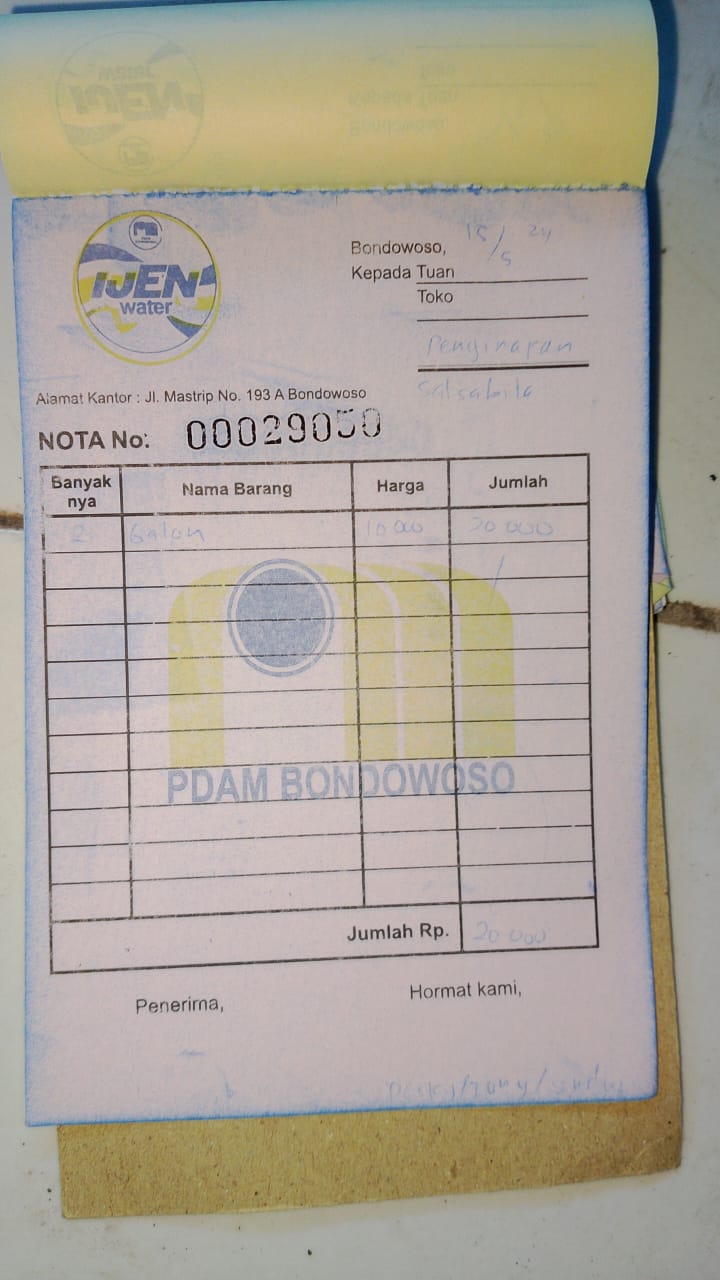 IJEN
water
Bondowoso, 15/5 24
Kepada Tuan
Toko
Penginapan
Salsabila
Alamat Kantor : Jl. Mastrip No. 193 A Bondowoso
NOTA No: 00029050
Banyak nya Nama Barang Harga Jumlah
2 Galon 10 000 20 000
PDAM BONDOWOSO
Jumlah Rp. 20 000
Penerima, Hormat kami,